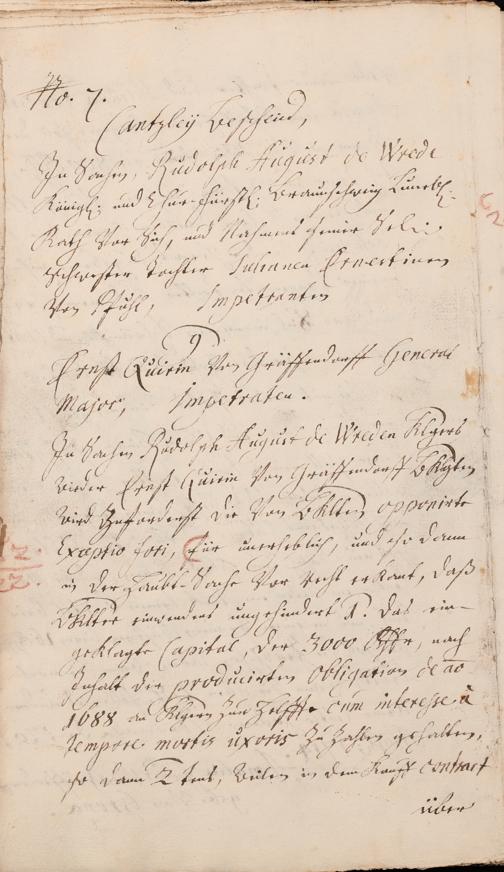 No. 7.
Cantzley Bescheid,
In Sachen, Rudolph August de Wrede
Königl: und Chur-Fürstl: Braunschweig Lüneb:
Rath vor Sich, und Nahmens seiner Seel:
Schwester Tochter Julianen Ernestinen
von Pfuhl, Impetranten
Ernst Quirin von Gräffendorff General
Major, Impetraten.
In Sachen Rudolph August de Wreden Klgers
wieder Ernst Quirin von Gräffendorff Bklgten
wird zuforderst die von Bklten opponirte
Exceptio fori, für unerheblich, und so dann
in der Haubt-Sache vor recht erkant, daß
Bklter einwendens ungehindert 1. das ein-
geklagte Capital, der 3000 Rthlr, nach
Inhalt der producirten obligation de ao
1688 an Klgern zur Helffte cum interesse à
tempore mortis uxoris zu zahlen gehalten,
so dann 2 tens, weilen in dem Kauff contract
über